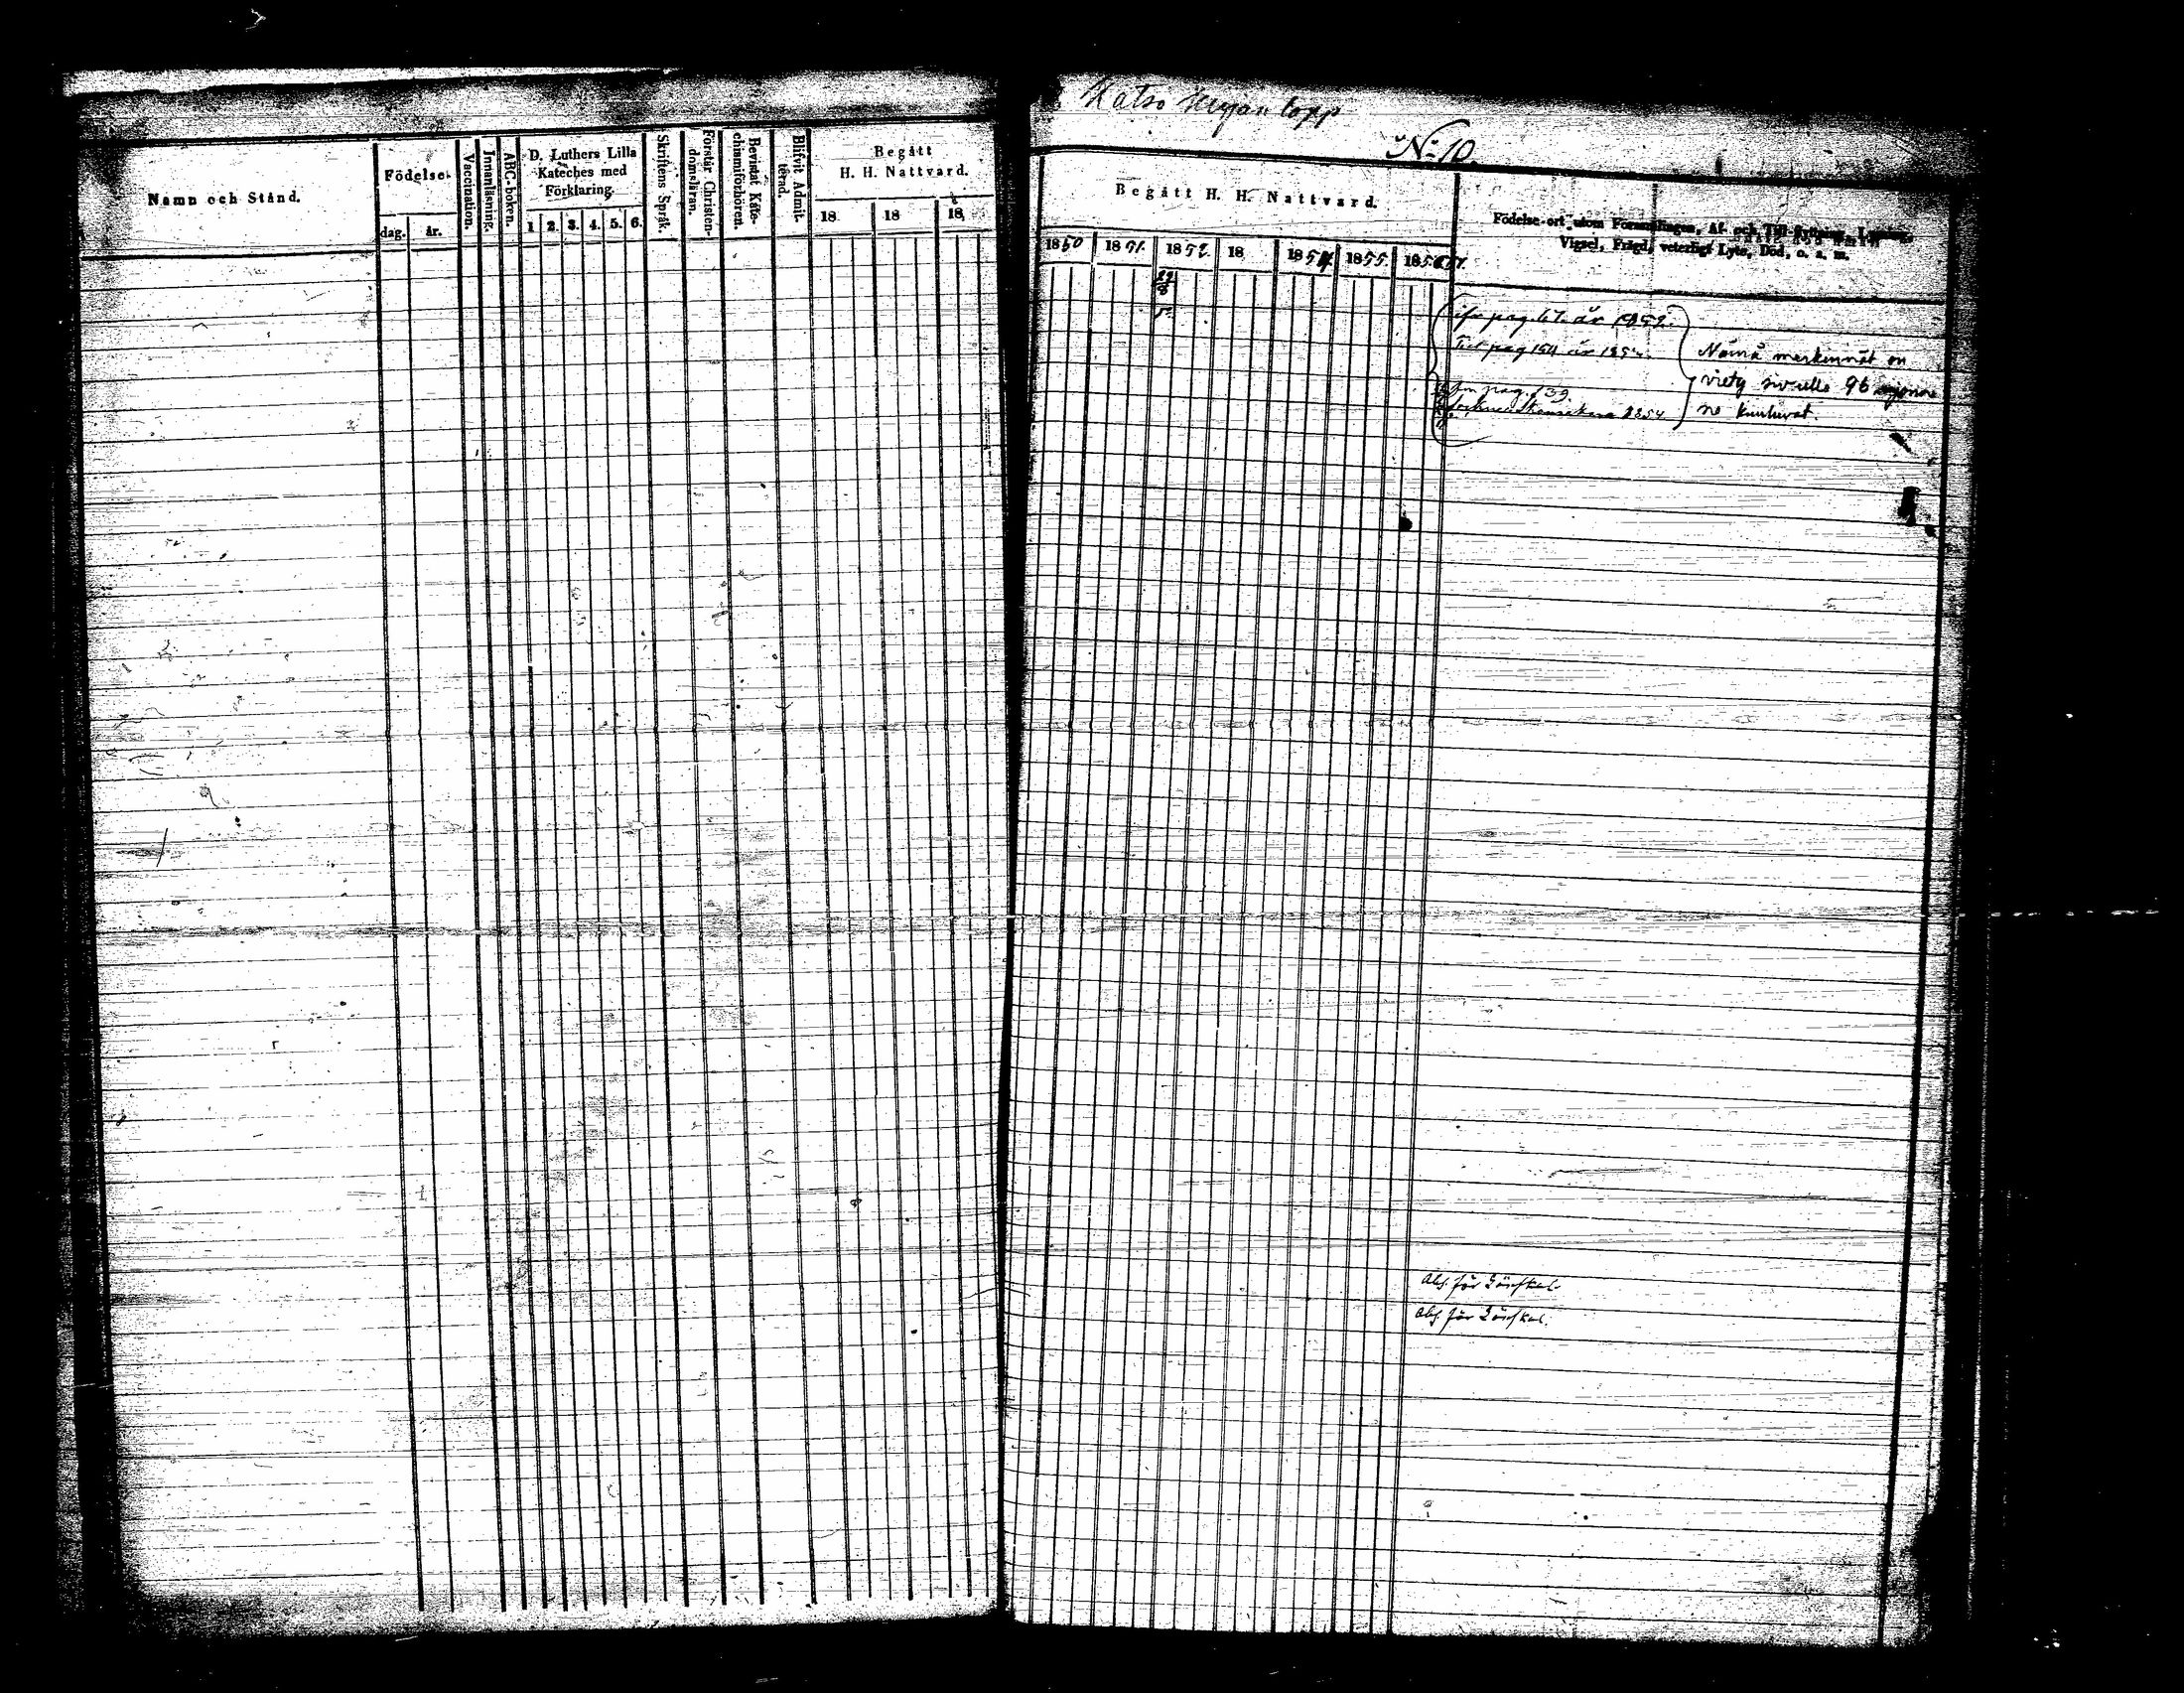 Namn och Stånd.
Födelse.
dag. år.
Vaccination.
Innanläsning.
ABC-boken.
D. Luthers Lilla
Kateches med
Förklaring.
1 2. 3. 4. 5. 6.
Skriftens Språk.
Förstår Christen-
domsläran.
Bevistat Kate-
chismiförhören.
Blifvit Admit-
terad.
Begått
H. H. Nattvard.
18 18 18
Katso kirjan lopp
No 10.
Begått H. H. Nattvard.
1850 1851. 1852. 18 1854. 1855. 1856
Födelse-ort utom Församlingen, Af- och Till-flyttning, Lysning,
Vigsel, Frägd, veterligt Lyte, Död, o. s. m.
pag. år 1852.
Till pag 154 år 185
Nämä merkinnät on
pag. 139.
viety sivulle 96
1854
ne kuuluvat.
Abs. för
Abs. för